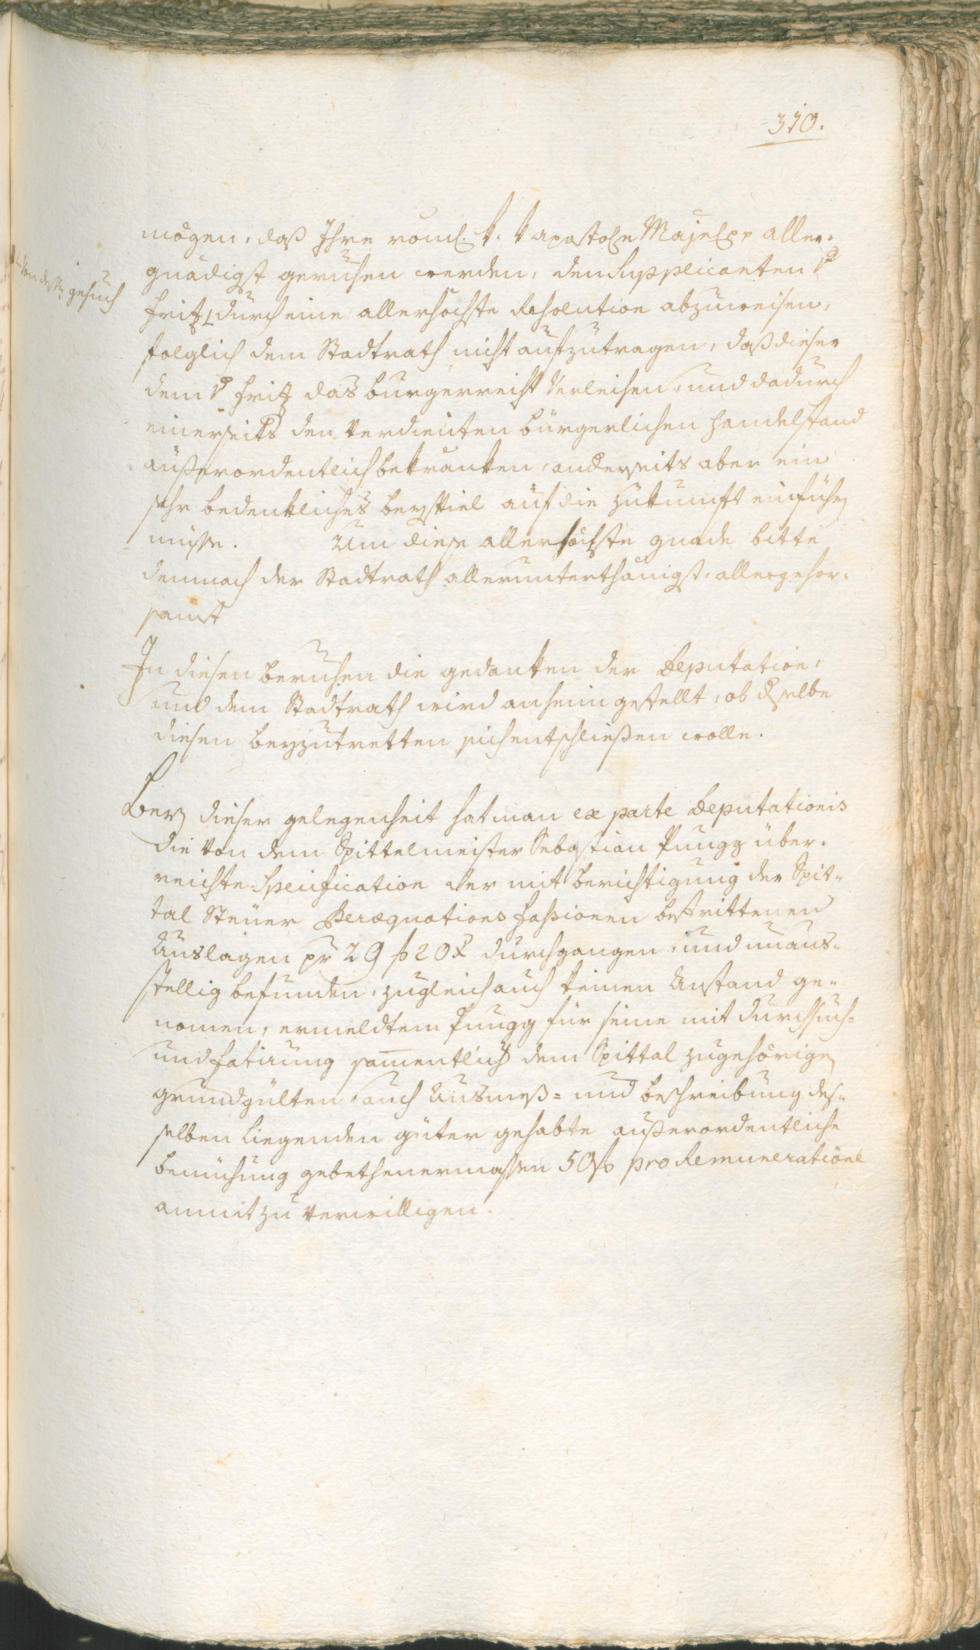 310.
mögen, daß Ihre röml. k. k. apostole Majeste aller-
gnädigst geruhen werden, den Supplicanten
gesuch
Fritz durch eine allerhöchste Resolution abzuweisen,
folglich dem Stadtrath nicht aufzutragen, daß dieser
dem Fritz das burgerrecht verleihen, und dadurch
einerseits den verdienten bürgerlichen handelstand
außerordentlich bekränken, anderseits aber ein
sehr bedenkliches beyspiel auf die zukunft einführen
müsse. Um diese allerhöchste gnade bitte
demnach der Stadtrath allerunterthänigst-allergehor-
samst
In diesen beruhen die gedanken der Deputation,
und dem Stadtrath wird anheim gestellt, ob derselbe
diesen beyzutretten sich entschließen wolle.
Bey dieser gelegenheit hat man ex parte Deputationis
die von dem Spittelmeister Sebastian Pungg über-
reichte Specification der mit berichtigung der Spit-
tal Steuer Peraequations Fassionen bestrittenen
Auslagen pr 29 f 20 x durchgangen, und unaus-
stellig befunden, zugleich auch keinen Anstand ge-
nomen, ermeldtem Pungg für seine mit Durchsuch-
und Fatirung samentlich dem Spittal zugehörigen
grundgülten, auch Ausmeß- und beschreibung des-
selben liegenden güter gehabte außerordentliche
bemühung gebethenermassen 50 f pro Remuneratione
anmit zu verwilligen.